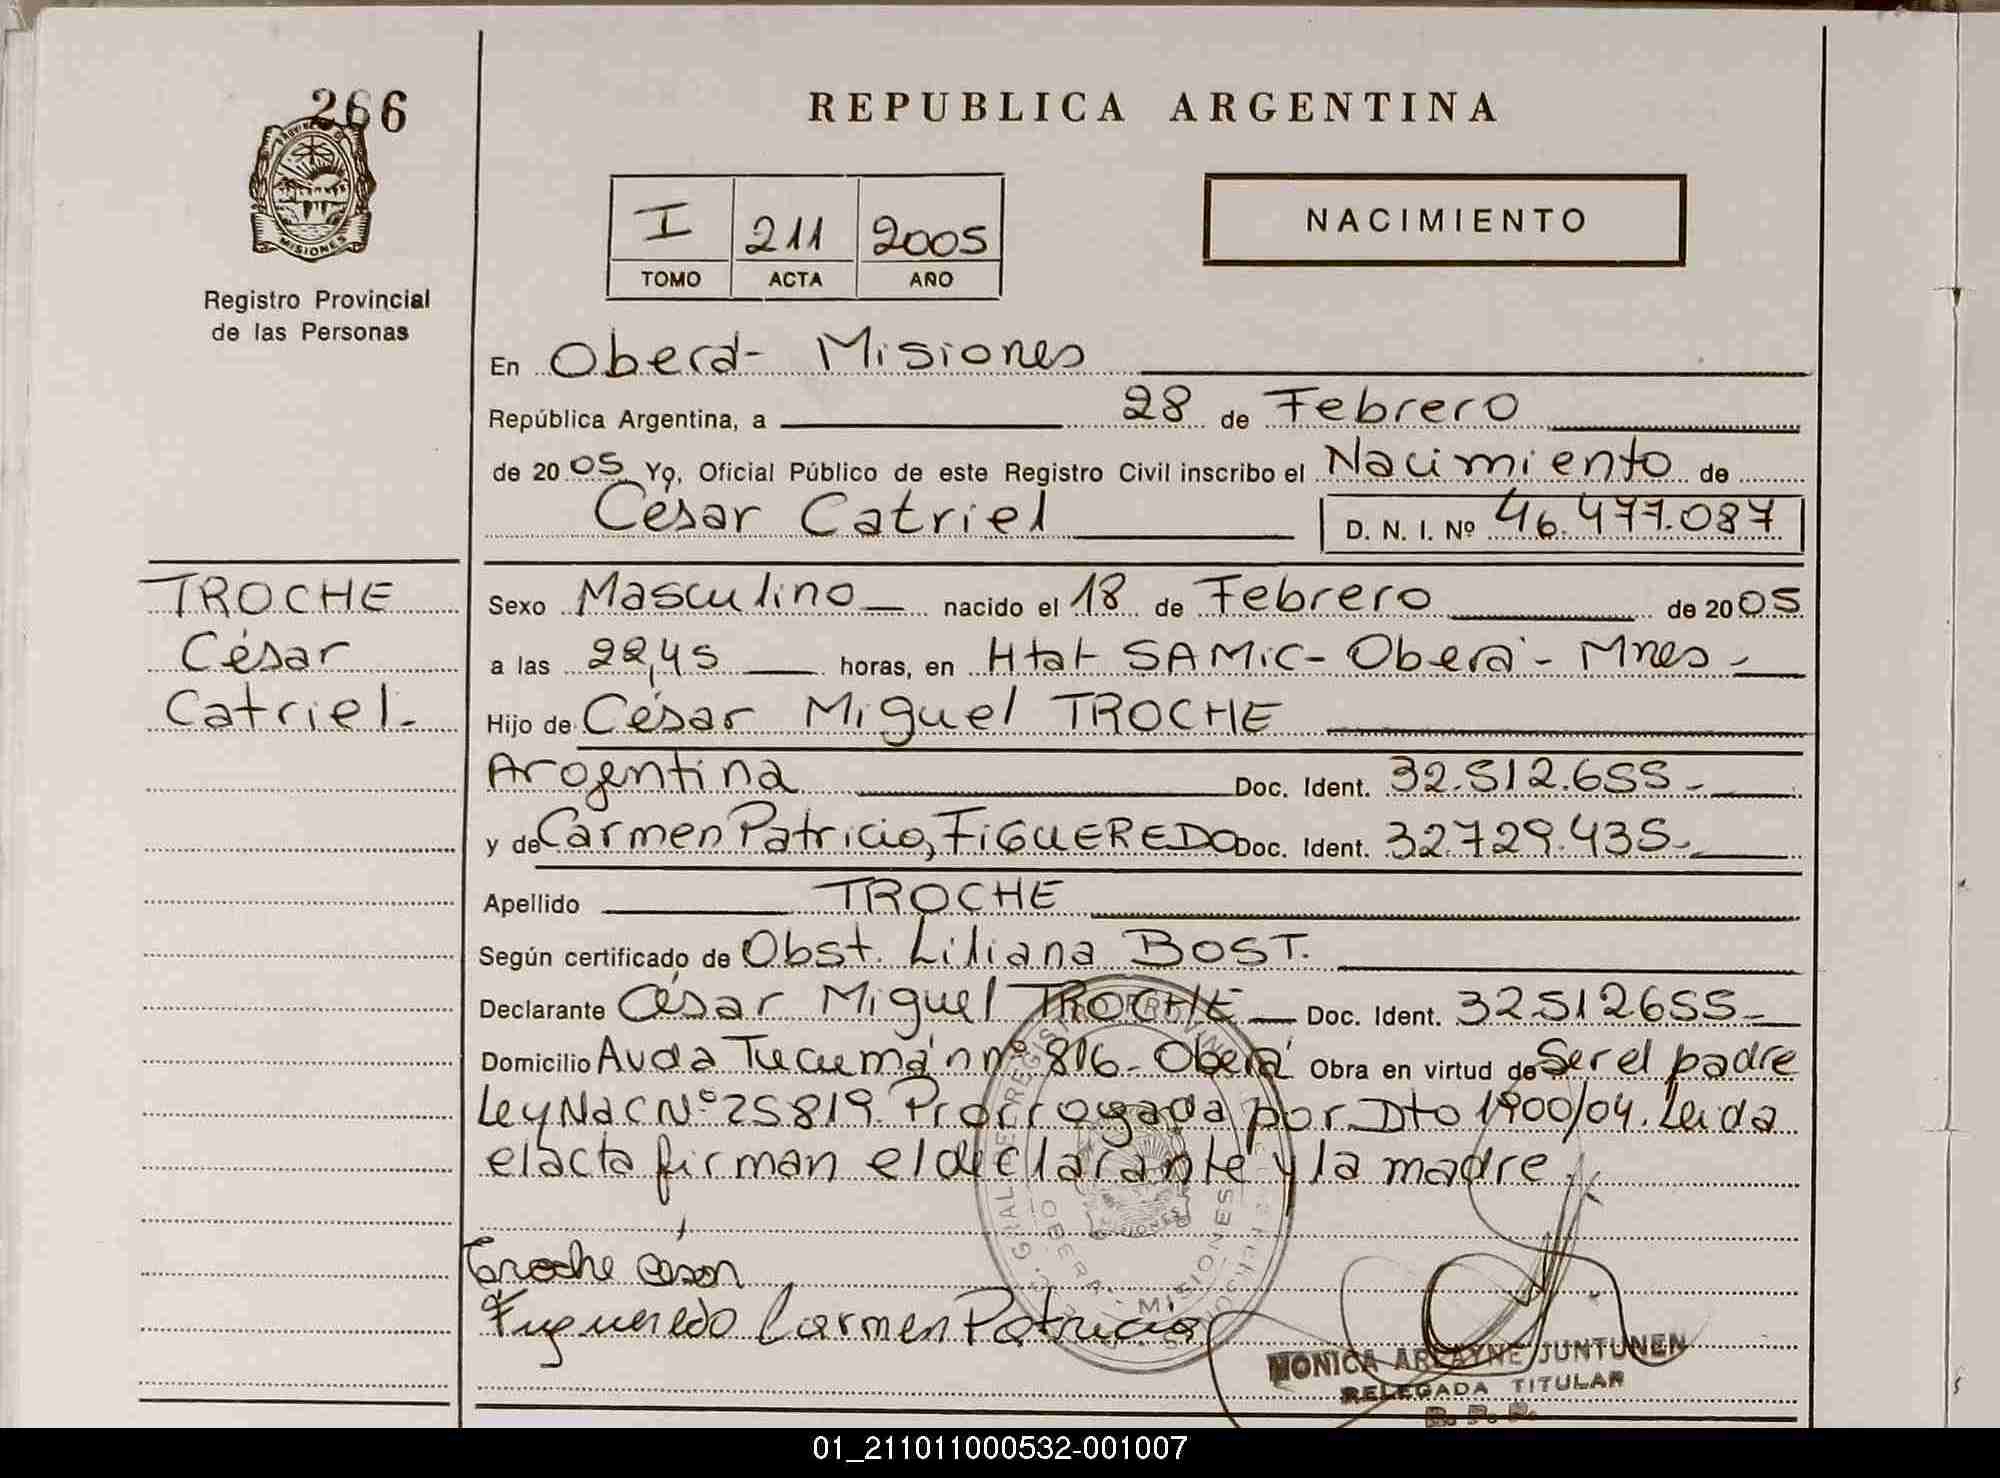 266
REPUBLICA ARGENTINA
PROVINCIA DE MISIONES
Registro Provincial
de las Personas
I 211 2005
TOMO ACTA AÑO
NACIMIENTO
En Oberá- Misiones
República Argentina, a 28 de Febrero
de 2005 Yo, Oficial Público de este Registro Civil inscribo el Nacimiento de
César Catriel D. N. I. Nº 46.477.087
TROCHE
César
Catriel.-
Sexo Masculino nacido el 18 de Febrero de 2005
a las 22,45 horas, en Htal SAMIC- Oberá- Mnes-
Hijo de César Miguel TROCHE
Argentina Doc. Ident. 32.512.655.-
y de Carmen Patricia, FIGUEREDO Doc. Ident. 32.729.435.-
Apellido TROCHE
Según certificado de Obst. Liliana BOST.
Declarante César Miguel TROCHE Doc. Ident. 32512655-
Domicilio Avda Tucumán nº 816- Oberá Obra en virtud de Ser el padre
Ley Nac Nº 25819. Prorrogada por Dto 1900/04. Leida
el acta firman el declarante y la madre.
Troche César
Figueredo Carmen Patricia
MONICA JUNTUNEN
DELEGADA TITULAR
R. P. P.
OBERA - MISIONES
01_211011000532-001007